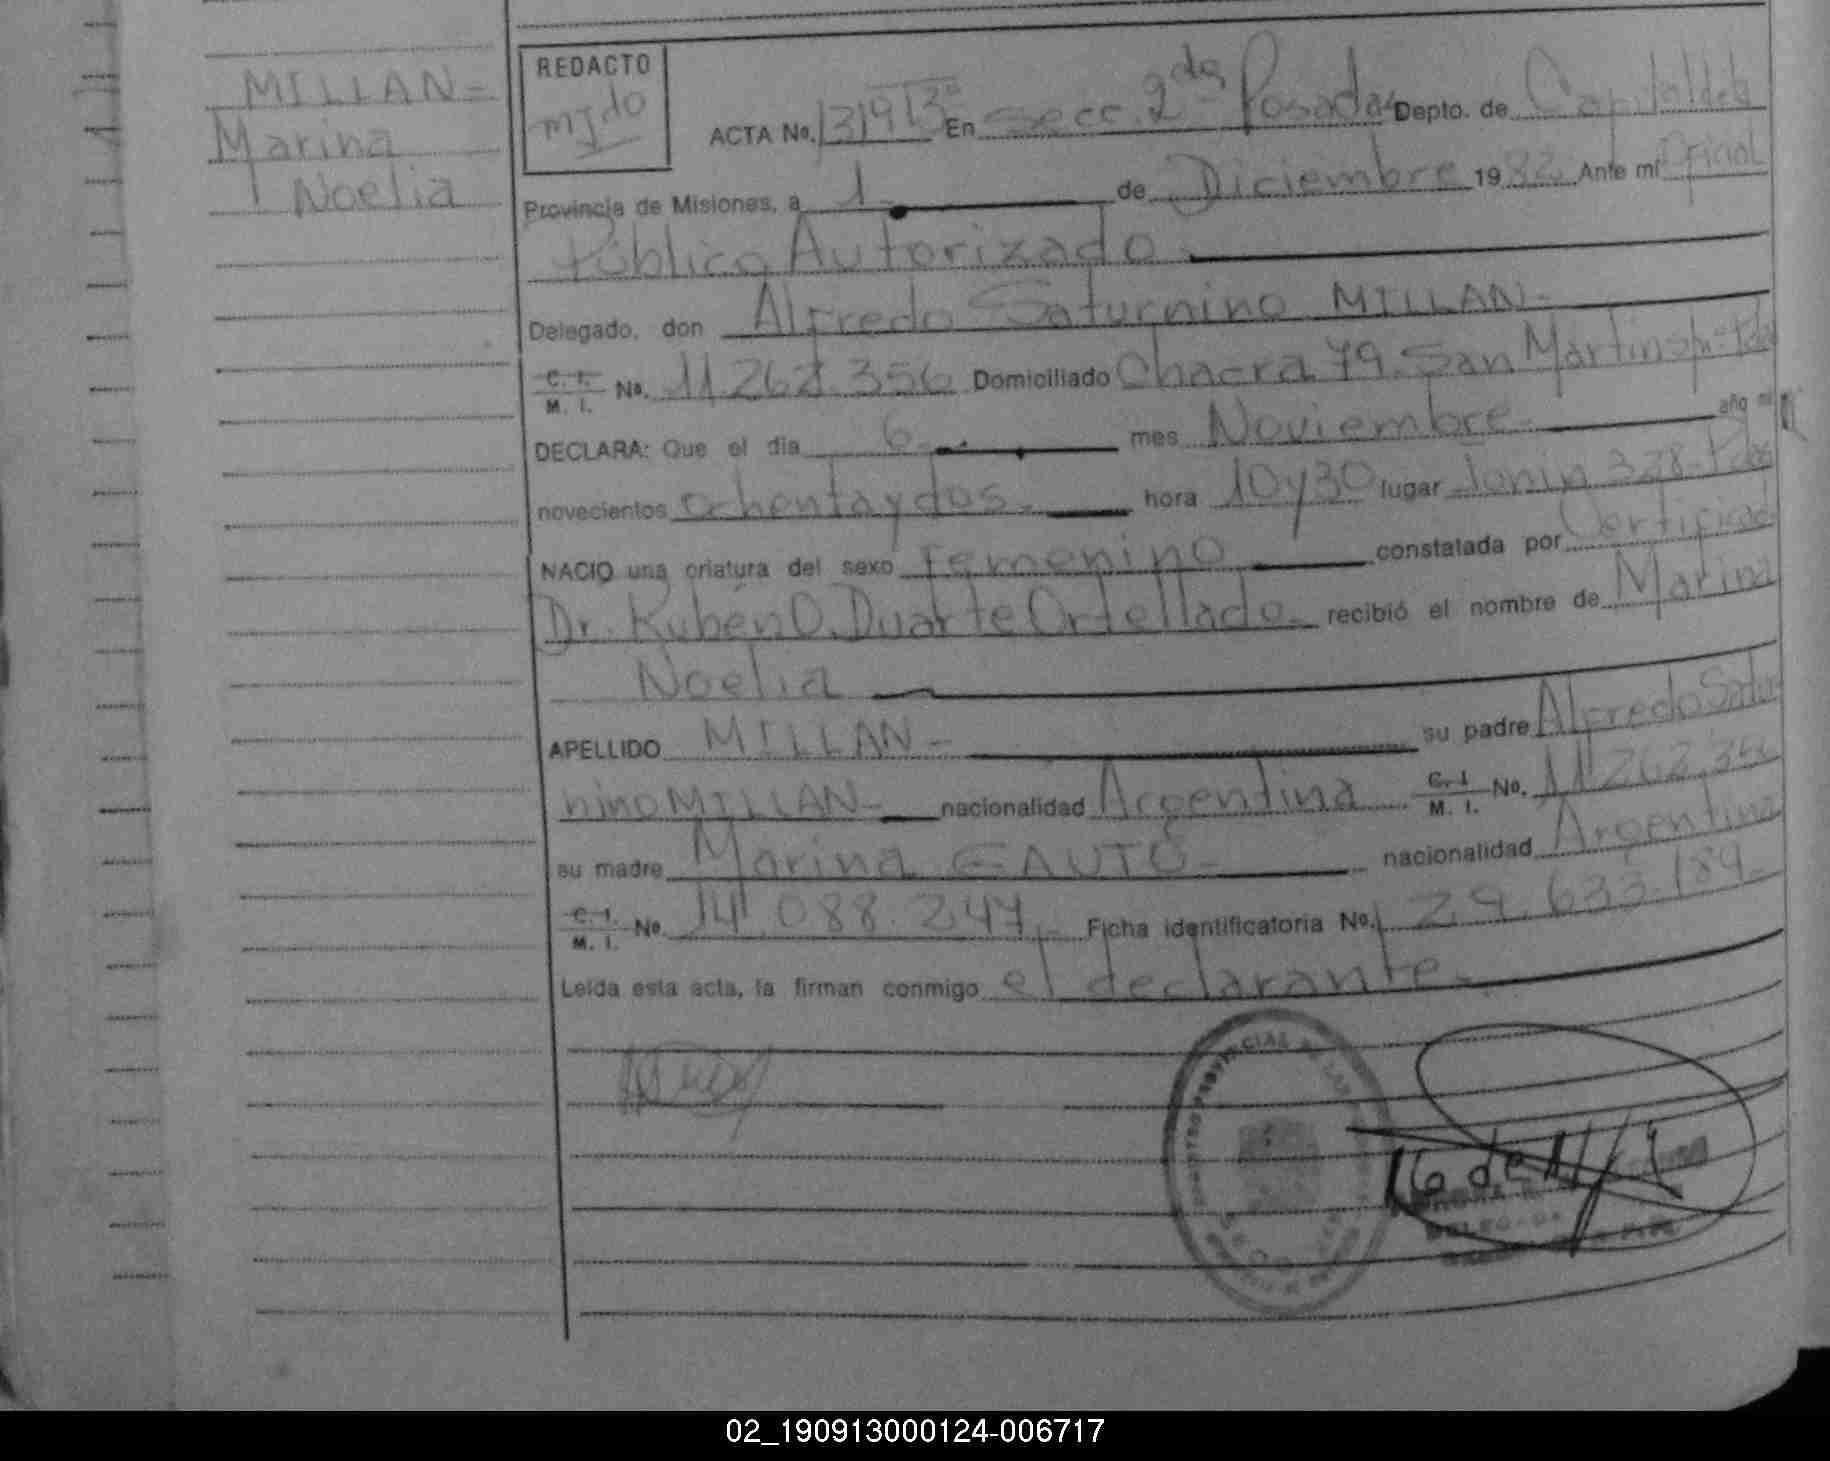 MILLAN-
Marina
Noelia
REDACTO
mjdo
ACTA No. 3193° En Secc. 2da Posadas Depto. de Capital de la
Provincia de Misiones, a 1 de Diciembre 1982 Ante mi Oficial
Público Autorizado
Delegado, don Alfredo Saturnino MILLAN-
C. I. M. I. No. 11.262.356 Domiciliado Chacra 79. San Martin
DECLARA: Que el dia 6 mes Noviembre año mil
novecientos ochenta y dos.- hora 10 y 30 lugar Junin 328-
NACIO una criatura del sexo femenino constatada por Certificado
Dr. Rubén O. Duarte Ortellado.- recibió el nombre de Marina
Noelia
APELLIDO MILLAN- su padre Alfredo Satur
nino MILLAN- nacionalidad Argentina C. I. M. I. No. 11.262.356
su madre Marina GAUTO- nacionalidad Argentina
C. I. M. I. No. 14.088.247.- Ficha identificatoria No. 29.633.189-
Leida esta acta, la firman conmigo el declarante.-
16 de 11/
02_190913000124-006717